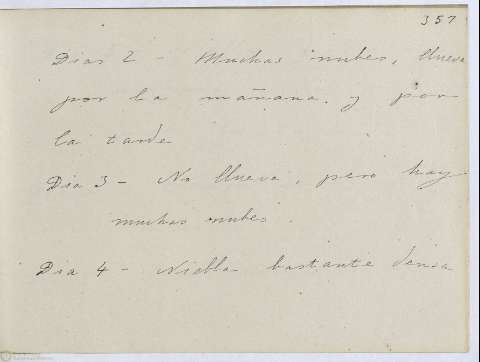 357
Dias 2 - Muchas nubes, llueve
por la mañana, y por
la tarde
Dia 3 - No llueve, pero hay
muchas nubes.
Dia 4 - Niebla bastante densa